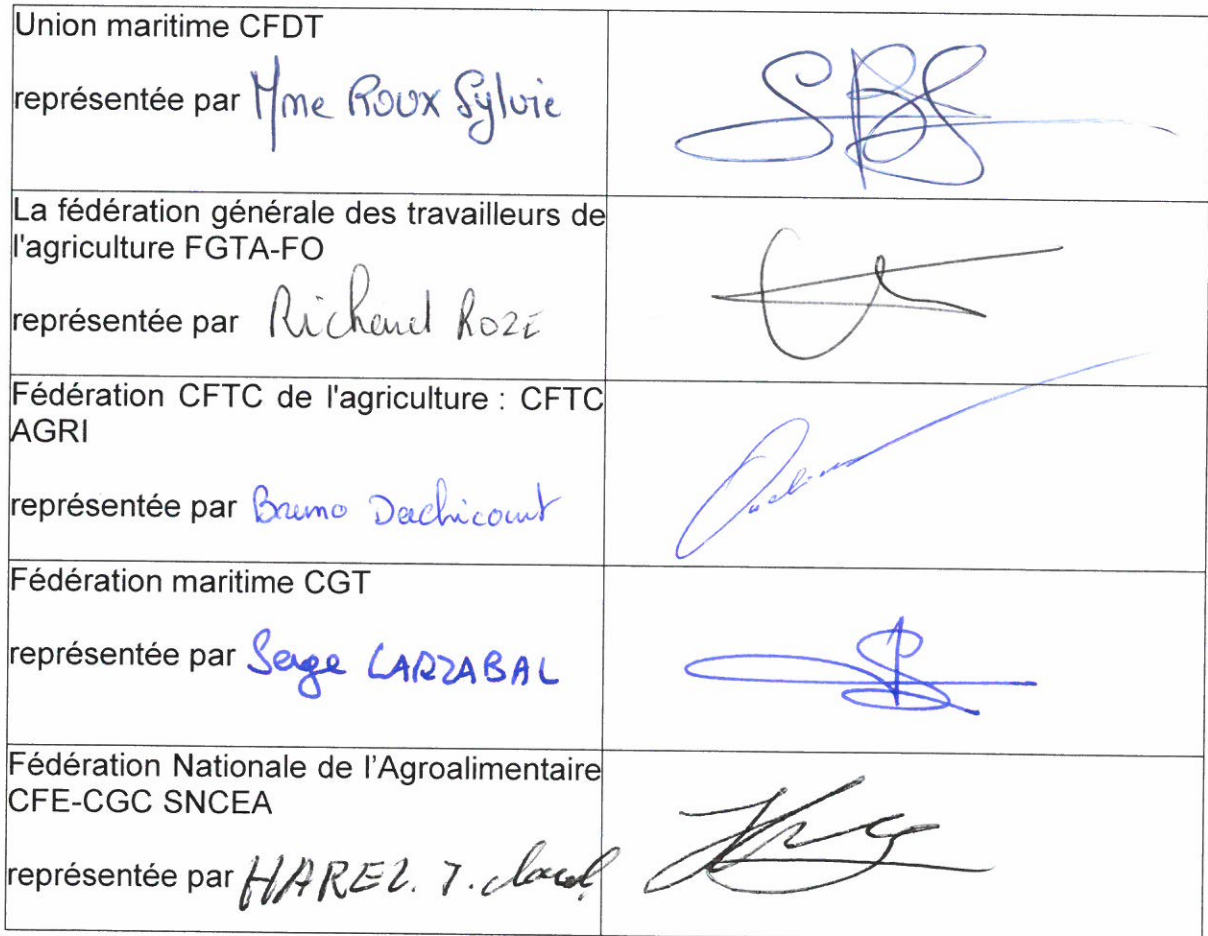 Union maritime CFDT
représentée par Mme Roux Sylvie
La fédération générale des travailleurs de
l'agriculture FGTA-FO
représentée par Richard ROZE
Fédération CFTC de l'agriculture : CFTC
AGRI
représentée par Bruno Dachicourt
Fédération maritime CGT
représentée par Serge LARZABAL
Fédération Nationale de l'Agroalimentaire
CFE-CGC SNCEA
représentée par HAREL. J. claud